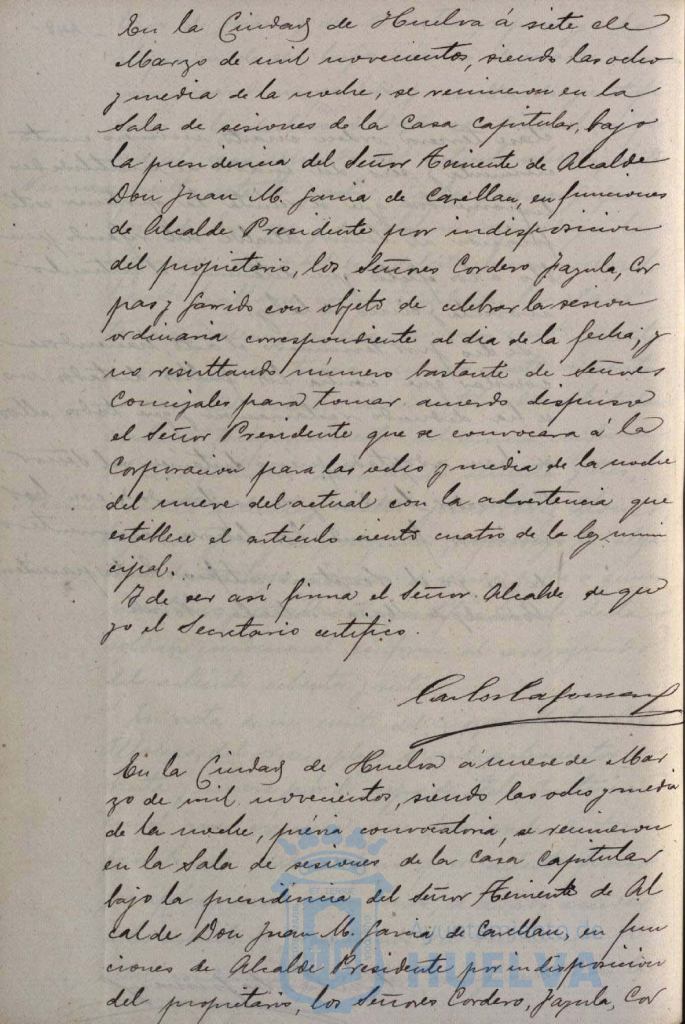 En la Ciudad de Huelva á siete de
Marzo de mil novecientos, siendo las ocho
y media de la noche, se reunieron en la
Sala de sesiones de la Casa capitular, bajo
la presidencia del Señor Teniente de Alcalde
Don Juan M. Garcia de Casellau, en funciones
de Alcalde Presidente por indisposicion
del propietario, los Señores Cordero, Jazula, Cor
pas y Garrido con objeto de celebrar la sesion
ordinaria correspondiente al dia de la fecha; y
no resultando número bastante de Señores
Concejales para tomar acuerdo dispuso
el Señor Presidente que se convocara á la
Corporacion para las ocho y media de la noche
del nueve del actual con la advertencia que
establece el artículo ciento cuatro de la ley muni
cipal.
Y de ser así firma el Señor Alcalde de que
yo el Secretario certifico.
En la Ciudad de Huelva á nueve de Mar
zo de mil novecientos, siendo las ocho y media
de la noche, prévia convocatoria, se reunieron
en la Sala de sesiones de la Casa Capitular
bajo la presidencia del Señor Teniente de Al
calde Don Juan M. Garcia de Casellau, en fun
ciones de Alcalde Presidente por indisposicion
del propietario, los Señores Cordero, Jazula, Cor
Ayuntamiento de
HUELVA